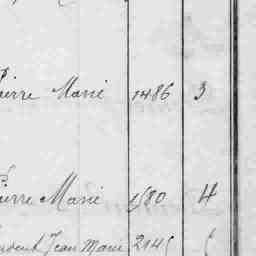 Pierre Marie 1486 3
Pierre Marie 1580 4
Jean Marie 2145